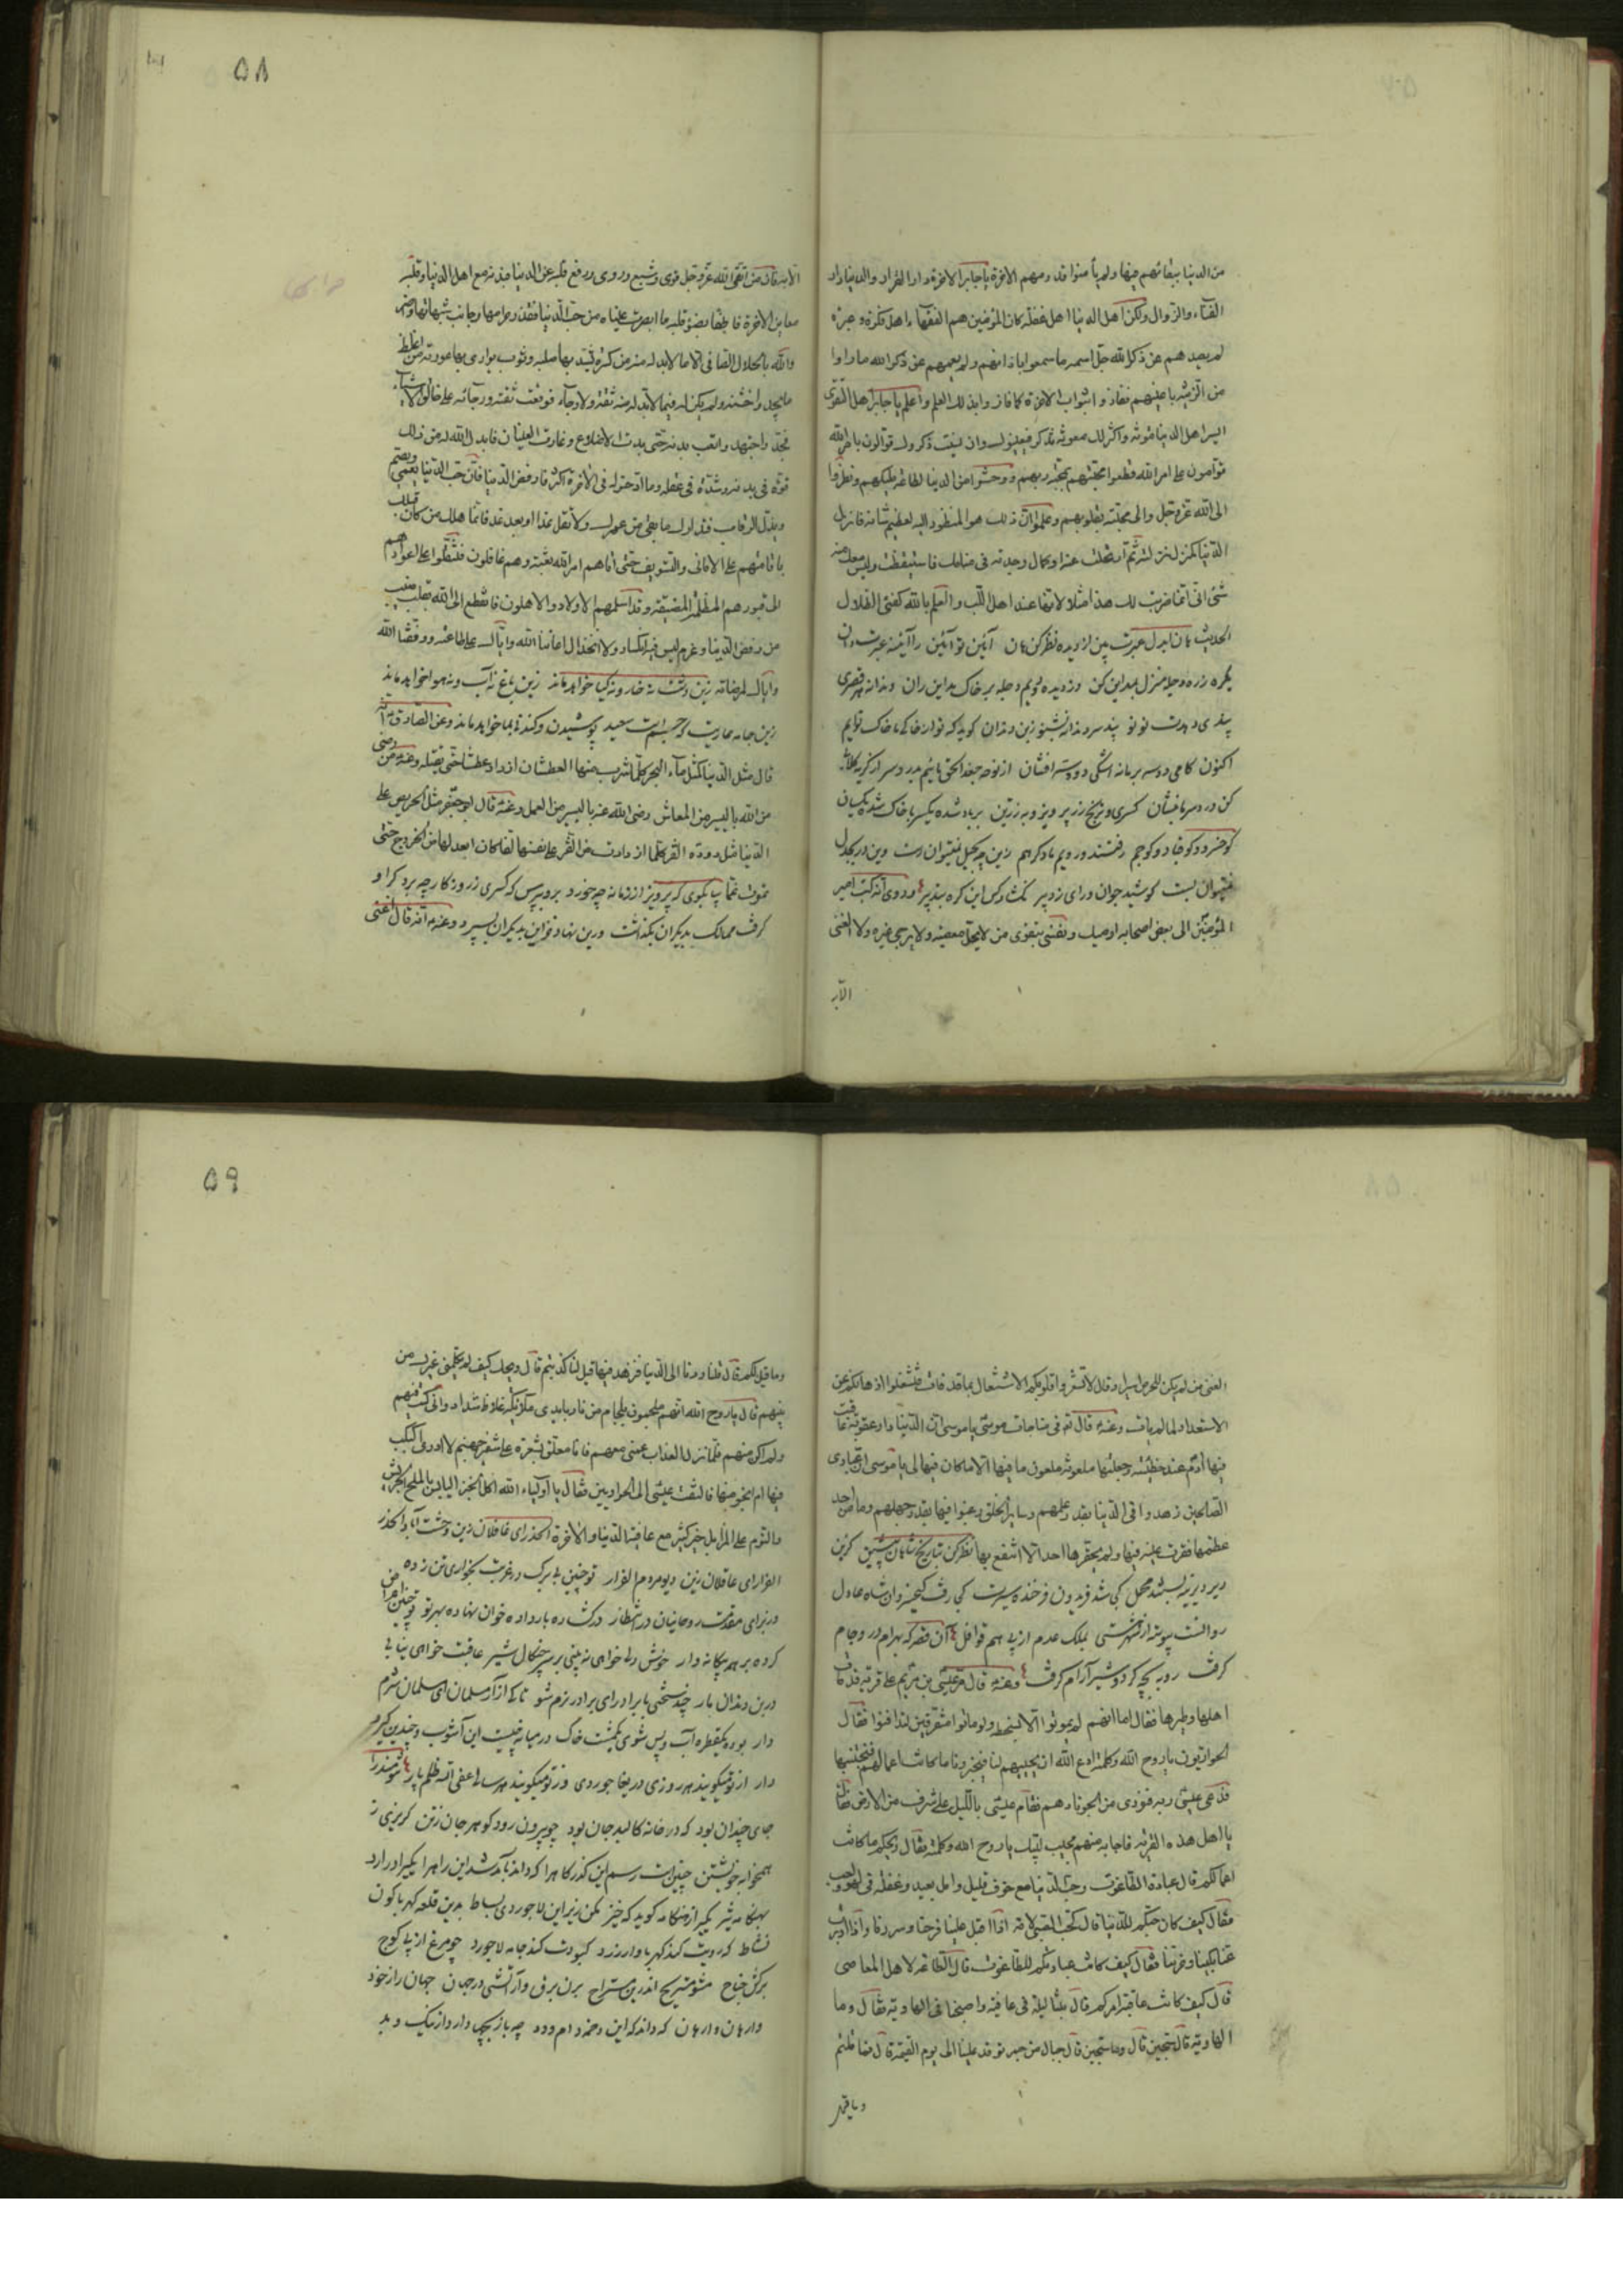 ٥٨
من الدنيا ببقائهم فيها ولم يأمنوا قدومهم الآخرة يا جابر الآخرة دار القرار والدنيا دار
الفناء والزوال ولكن اهل الدنيا اهل غفلة كان المؤمنين هم الفقهاء اهل فكرة وعبرة
لم يصدهم عن ذكر الله جل اسمه ما سمعوا باذانهم ولم يعمهم عن ذكر الله ما راوا
من الزينة باعينهم ففازوا بثواب الآخرة كما فازوا بذلك العلم واعلم يا جابر ان اهل التقوى
ايسر اهل الدنيا مؤنة واكثرهم لك معونة تذكر فيعينونك وان نسيت ذكروك قوالون بامر الله
قوامون على امر الله قطعوا محبتهم بمحبة ربهم ووحشوا من الدنيا لطاعة مليكهم ونظروا
الى الله عز وجل والى محبته بقلوبهم وعلموا ان ذلك هو المنظور اليه لعظيم شانه فانزل
الدنيا كمنزل نزلته ثم ارتحلت عنه او كمال وجدته في منامك فاستيقظت وليس معك منه
شئ انى انما ضربت لك هذا مثلا لانها عند اهل اللب والعلم بالله كفئ الظلال
الحديث هان ايدل عبرت بين از ديده نظر كن هان ايوان مداين را آئينه عبرت دان
يكره ز ره دجله منزل بمداين كن وز ديده دويم دجله بر خاك مداين ران دندانه هر قصرى
پندى دهدت نو نو پند سر دندانه بشنو ز بن دندان كويد كه تو از خاكى ما خاك توايم
اكنون كامى دو سه بر ما نه اشكى دو سه افشان از نوحه جغد الحق مائيم بدرد سر از كريه كلابى
كن درد سر ما بنشان كسرى و ترنج زر پرويز و به زرين بر باد شده يكسر با خاك شده يكسان
كو خسرو و كو قباد و كو جم رفتند و رويم ما و كر هم زين چه بحيل نتوان رست وين در بجدل
نتوان بست كوشيد جوان وراى زد پير نكشاد كس اين كره بتدبير وروى انه كتب امير
المؤمنين الى بعض اصحابه اوصيك ونفسى بتقوى من لا يحل معصيته ولا يرجى غيره ولا الغنى
الا به
الا به فان من اتقى الله عز وجل قوى وشبع وروى ورفع عقله عن الدنيا فبدنه مع اهل الدنيا وقلبه
معاين الآخرة فاطفأ بضوء قلبه ما ابصرت عيناه من حب الدنيا فقذر حرامها وجانب شبهاتها واضر
والله بالحلال الصافى الا ما لا بد له منه من كسرة يشد بها صلبه وثوب يوارى بها عورته من اغلظ
ما يجد واخشنه ولم يكن له فيما لا بد له منه ثقة ولا رجاء فوقعت ثقته ورجائه على خالق الاشياء
فجد واجتهد واتعب بدنه حتى بدت الاضلاع وغارت العينان فابدل الله له من ذلك
قوة فى بدنه وشدة فى عقله وما ادخر له فى الآخرة اكثر فارفض الدنيا فان حب الدنيا يعمى ويصم
ويذل الرقاب فتدارك ما بقى من عمرك ولا تقل غدا او بعد غد فانما هلك من كان قبلك
باقامتهم على الامانى والتسويف حتى اتاهم امر الله بغتة وهم غافلون فنقلوا على اعوادهم
الى قبورهم المظلمة الضيقة وقد اسلمهم الاولاد والاهلون فانقطع الى الله بقلب منيب
من رفض الدنيا وعزم ليس فيه انكسار ولا انخذال اعاننا الله واياك على طاعته ووفقنا الله
واياك لمرضاته زين دشت نه خار و نه كيا خواهد ماند زين باغ نه آب و نه هوا خواهد ماند
زين جامه عاريت كه جسم است سعيد پوشيدن وكندن بما خواهد ماند وعن الصادق انه
قال مثل الدنيا كمثل ماء البحر كلما شرب منها العطشان ازداد عطشا حتى يقتله وعنه من رضى
من الله باليسير من المعاش رضى الله عنه باليسير من العمل وعنه قال ابو جعفر مثل الحريص على
الدنيا مثل دودة القز كلما ازدادت من القز على نفسها لفا كان ابعد لها من الخروج حتى
تموت غما بيا بكوى كه پرويز از زمانه چه خورد برو بپرس كه كسرى ز روزكار چه برد كر او
كرفت ممالك بديكران بكذاشت ورين نهاد خزاين بديكران بسپرد وعنه انه قال اغنى
٥٩
الغنى من لم يكن للحرص اسيرا وقال لا تشعروا قلوبكم الاشتغال بما قد فات فتشغلوا اذهانكم عن
الاستعداد لما لم يات وعنه قال انه فى مناجات موسى يا موسى ان الدنيا دار عقوبة عاقبت
فيها آدم عند خطيئته وجعلتها ملعونة ملعون ما فيها الا ما كان فيها لى يا موسى ان عبادى
الصالحين زهدوا فى الدنيا بقدر علمهم وساير الخلق رغبوا فيها بقدر جهلهم وما من احد
عظمها فقرت عينه فيها ولم يحقرها احد الا انتفع بها نظر كن بتاريخ شاهان پيشين كزين
دير ديرينه بستند محمل كجا شد فريدون فرخنده سيرت كجا رفت كيخسرو آن شاه عادل
روانست پيوسته از شهر هستى بملك عدم از پى هم قوافل آن قصر كه بهرام درو جام
كرفت روبه بچه كرد و شير آرام كرفت وعنه قال مر عيسى بن مريم على قرية قد مات
اهلها وطيرها فقال اما انهم لم يموتوا الا بسخطة ولو ماتوا متفرقين لتدافنوا فقال
الحواريون يا روح الله وكلمته ادع الله ان يحييهم لنا فيخبرونا ما كانت اعمالهم فنجتنبها
فدعى عيسى ربه فنودى من الجو نادهم فقام عيسى بالليل على شرف من الارض فقال
يا اهل هذه القرية فاجابه منهم مجيب لبيك يا روح الله وكلمته فقال ويحكم ما كانت
اعمالكم قال عبادة الطاغوت وحب الدنيا مع خوف قليل وامل بعيد وغفلة فى لهو ولعب
فقال كيف كان حبكم للدنيا قال كحب الصبى لامه اذا اقبل علينا فرحنا وسررنا واذا ادبرت
عنا بكينا وحزنا فقال كيف كانت عبادتكم للطاغوت قال الطاعة لاهل المعاصى
قال كيف كانت عاقبة امركم قال بتنا ليلة فى عافية واصبحنا فى الهاوية فقال وما
الهاوية قال سجين قال وما سجين قال جبال من جمر توقد علينا الى يوم القيمة قال فما قلتم
وما قيل
وما قيل لكم قال قلنا ردنا الى الدنيا فنزهد فيها قيل لنا كذبتم قال ويحك كيف لم يكلمنى غيرك من
بينهم قال يا روح الله انهم ملجمون بلجام من نار بايدى ملائكة غلاظ شداد وانى كنت فيهم
ولم اكن منهم فلما نزل العذاب عمنى معهم فانا معلق بشعرة على شفير جهنم لا ادرى اكبكب
فيها ام انجو منها فالتفت عيسى الى الحواريين فقال يا اولياء الله اكل الخبز اليابس بالملح الجريش
والنوم على المزابل خير كثير مع عافية الدنيا والآخرة الحذر اى غافلان زين وحشت آباد الحذر
الفرار اى عاقلان زين ديو مردم الفرار
كرده بر همه يكانه وار خوش دلى خواهى نه بينى بر سر چنكال شير عافيت خواهى نيابى
درين دندان مار چند سختى با برادر اى برادر نرم شو تا كى آزار مسلمان اى مسلمان شرم
دار بوده يكقطره آب و پس شوى يكمشت خاك در ميانه چيست اين آشوب و چندين كيرودار
جاى چندان بود كه در خانه كالبد جان بود چو بيرون رود كوهر جان زتن كريزى ز
همخوابه خويشتن چنين است رسم اين كذركاه را كه دارد بآمد شد اين راه را يكى را در آرد
بهنكامه تيز يكى را ز هنكامه كويد كه خيز مكن زير اين لاجوردى بساط بدين قلعه كهرباكون
نشاط كه رويت كند كهربا وار زرد كبودت كند جامه لاجورد چو مرغ از پى كوچ
بركش جناح مشو مستريح اندرين مستراح بزن برق وار آتشى در جهان جهان را ز خود
وارهان وارهان كه داند كه اين دخمه دام و دد چه بازيچه دارد از نيك و بد